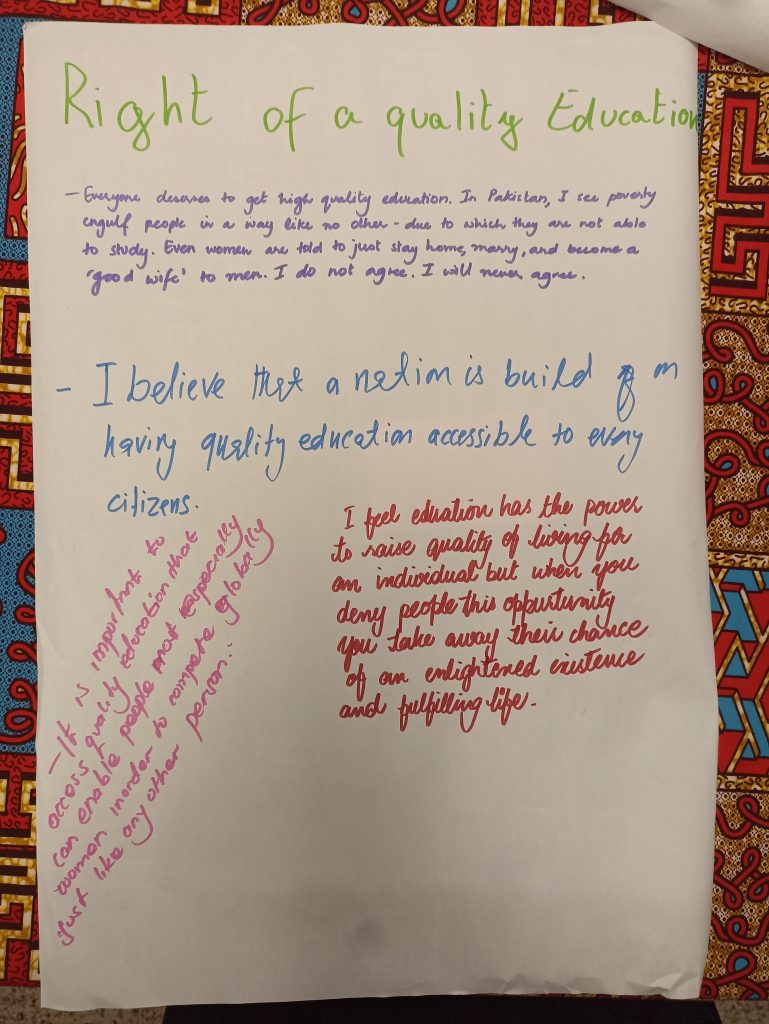 Right of a quality Education
- Everyone deserves to get high quality education. In Pakistan, I see poverty
engulf people in a way like no other - due to which they are not able
to study. Even women are told to just stay home, marry, and become a
'good wife' to men. I do not agree. I will never agree.
- I believe that a nation is build on
having quality education accessible to every
citizens.
I feel eduation has the power
to raise quality of living for
an individual but when you
deny people this opportunity
you take away their chance
of an enlightened existence
and fulfilling life.
- It is important to
access quality education that
can enable people most especially
women inorder to compete globally
just like any other person.